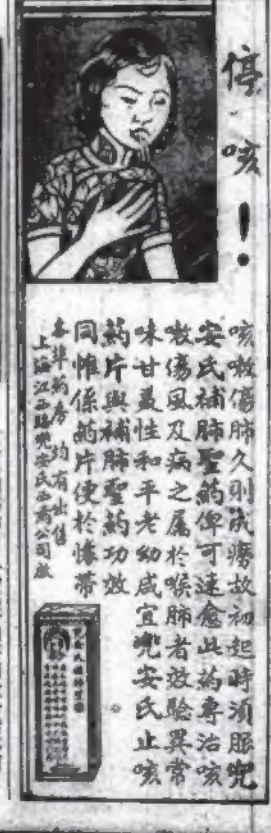 停咳！
咳嗽傷肺久則成癆故初起時須服兜
安氏補肺聖藥俾可速愈此药專治咳
嗽傷風及病之屬於喉肺者效驗異常
味甘美性和平老幼咸宜兜安氏止咳
药片與補肺聖药功效
同惟係药片便於懷帶
各埠药房均有出售
上海江西路兜安氏西药公司啟